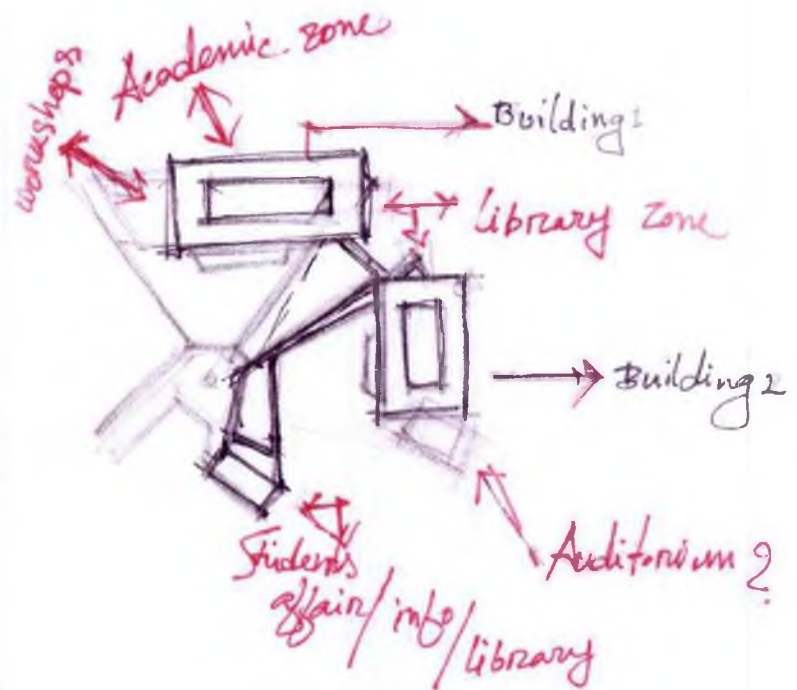 workshops
Academic zone
Building 1
Library zone
Building 2
Auditorium ?
Students
affair/info/
library